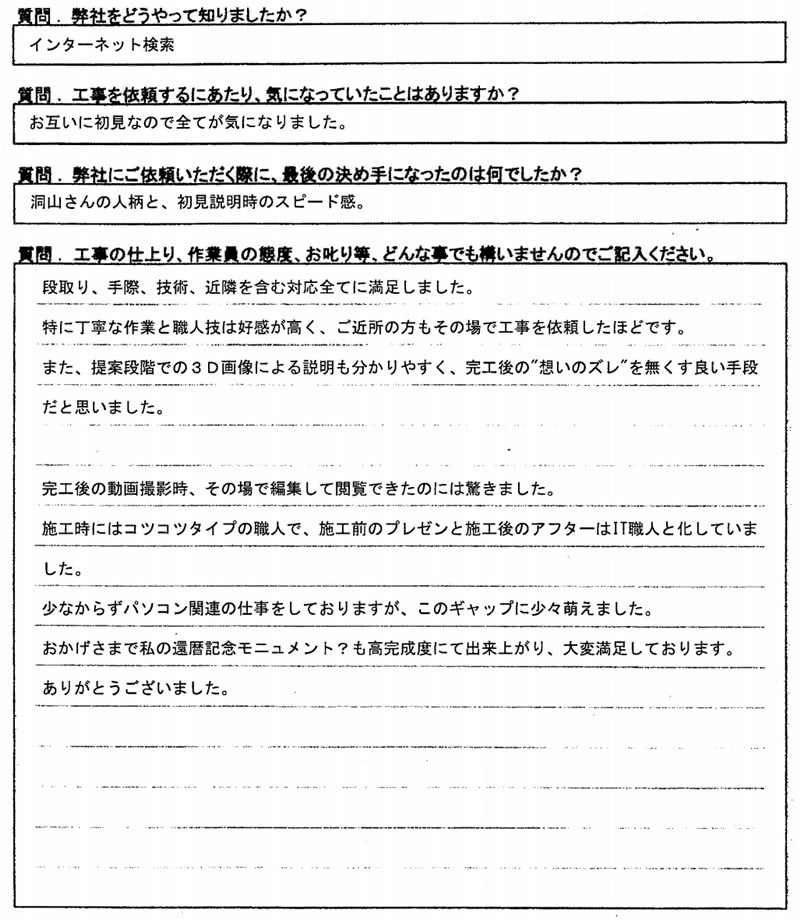 質問．弊社をどうやって知りましたか？
インターネット検索
質問．工事を依頼するにあたり、気になっていたことはありますか？
お互いに初見なので全てが気になりました。
質問．弊社にご依頼いただく際に、最後の決め手になったのは何でしたか？
洞山さんの人柄と、初見説明時のスピード感。
質問．工事の仕上り、作業員の態度、お叱り等、どんな事でも構いませんのでご記入ください。
段取り、手際、技術、近隣を含む対応全てに満足しました。
特に丁寧な作業と職人技は好感が高く、ご近所の方もその場で工事を依頼したほどです。
また、提案段階での３Ｄ画像による説明も分かりやすく、完工後の"想いのズレ"を無くす良い手段
だと思いました。
完工後の動画撮影時、その場で編集して閲覧できたのには驚きました。
施工時にはコツコツタイプの職人で、施工前のプレゼンと施工後のアフターはIT職人と化していま
した。
少なからずパソコン関連の仕事をしておりますが、このギャップに少々萌えました。
おかげさまで私の還暦記念モニュメント？も高完成度にて出来上がり、大変満足しております。
ありがとうございました。